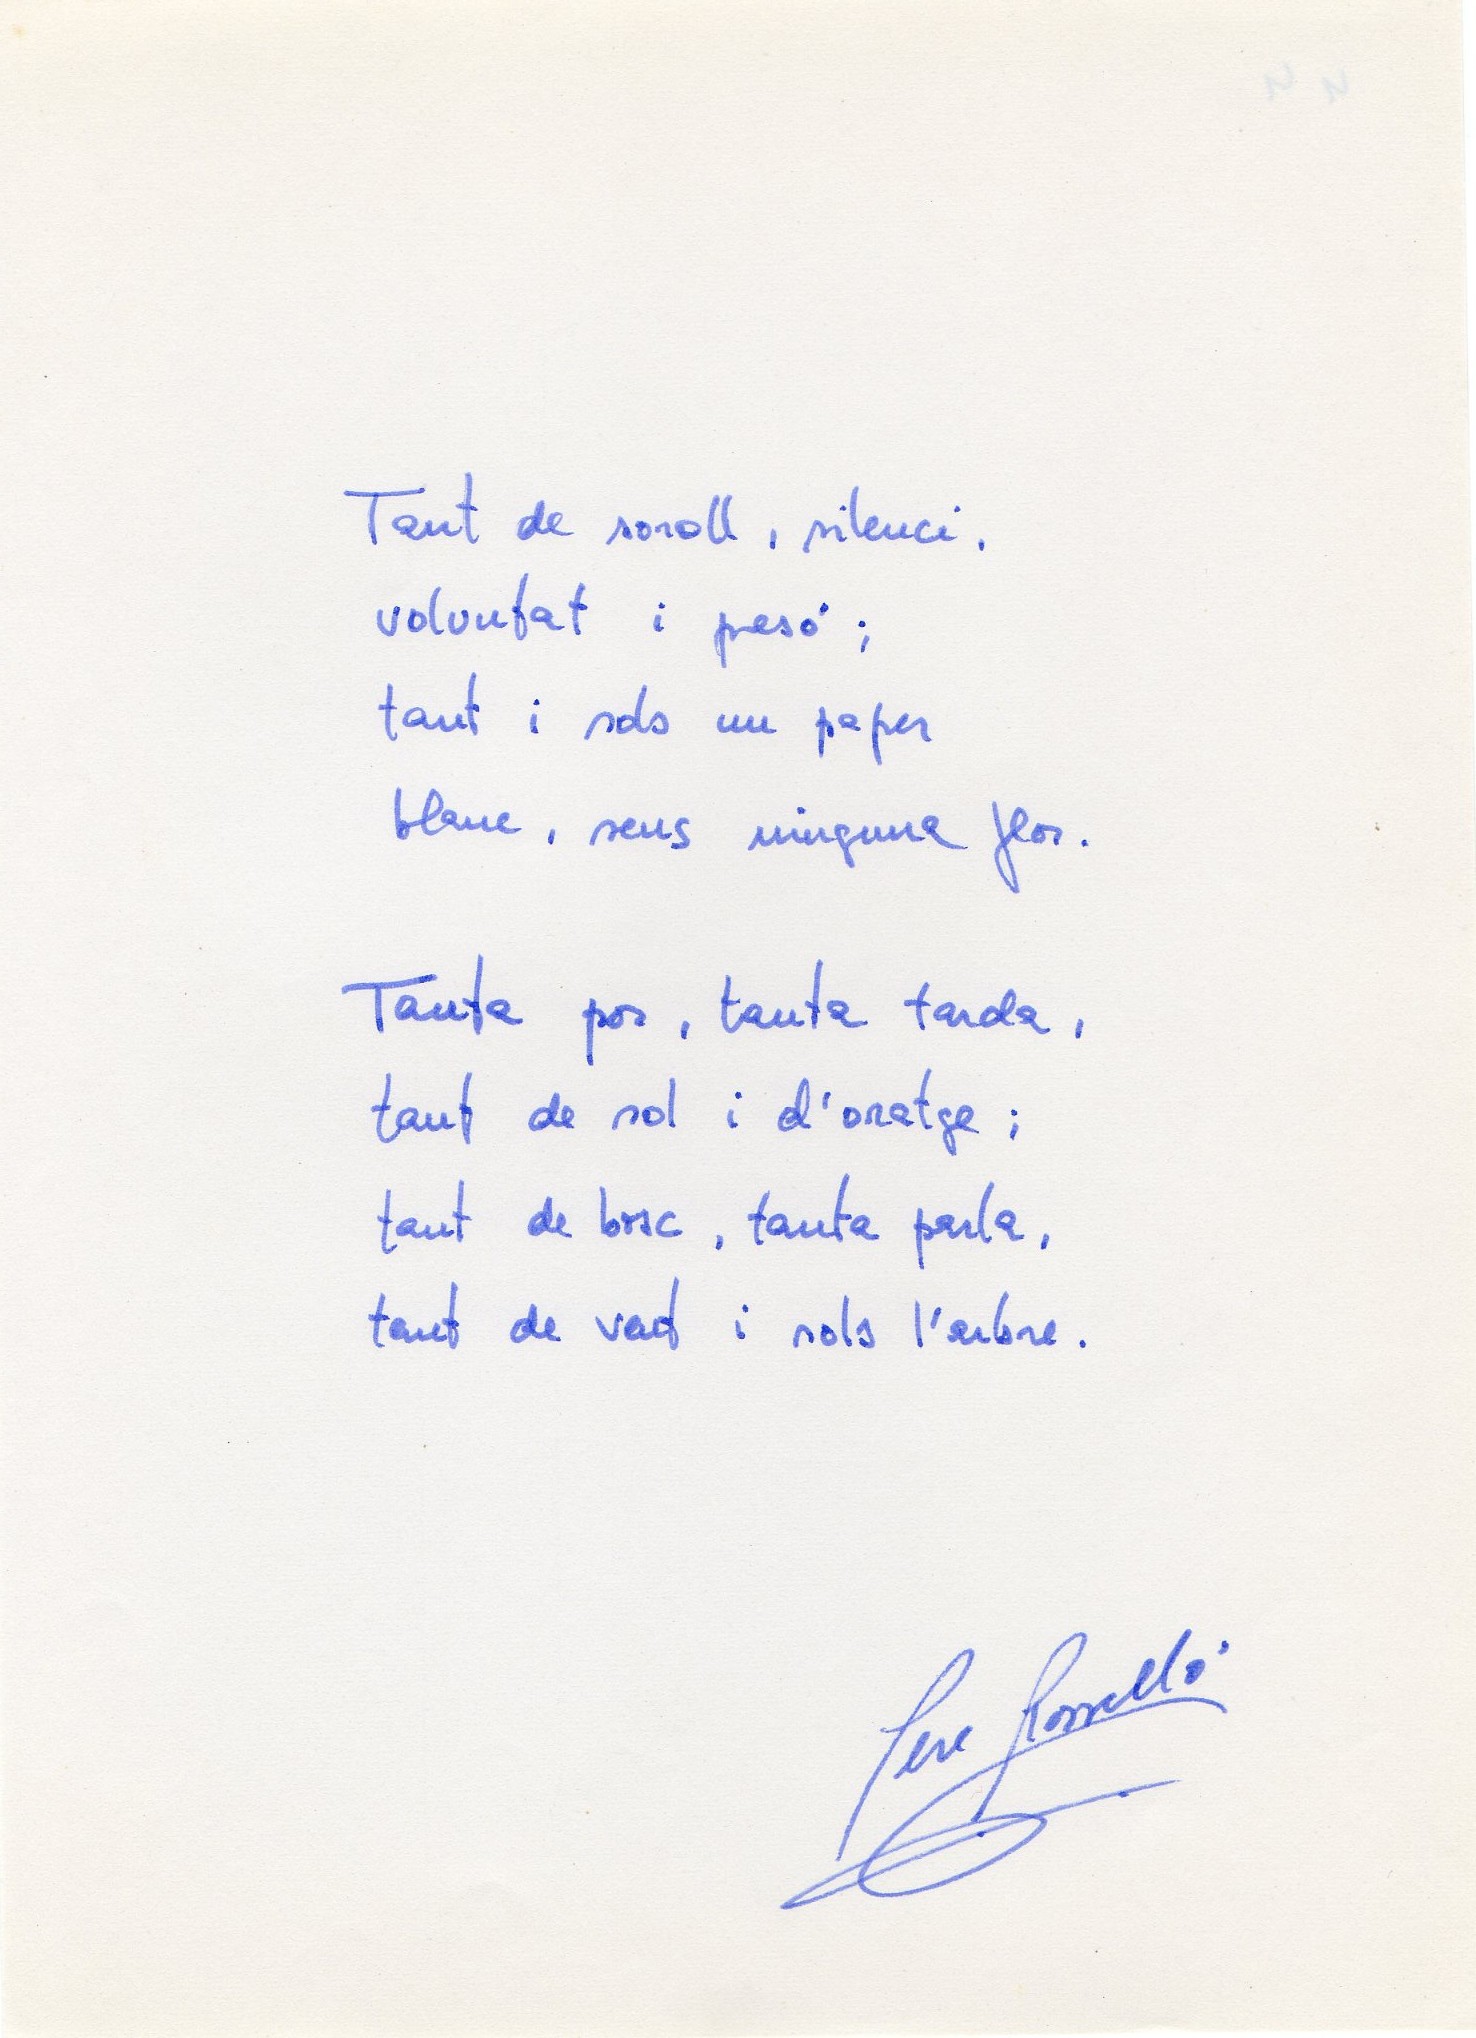 Tant de soroll, silenci,
voluntat i presó;
tant i sols un paper
blanc, sens ninguna flor.
Tanta por, tanta tarda,
tant de sol i d'oratge;
tant de bosc, tanta parla,
tant de vad i sols l'arbre.
Pere Rosselló